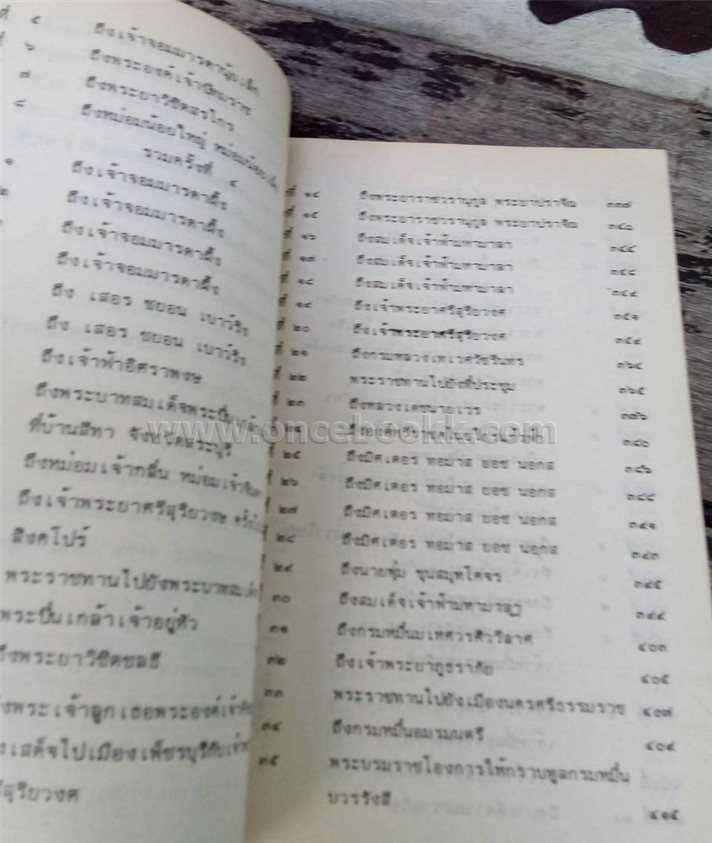 ที่ ๕ ถึงเจ้าจอมมารดา
ที่ ๖ ถึงพระองค์เจ้า
๗ ถึงพระยาวิชิตสรไกร
๘ ถึงหม่อมน้อยใหญ่ หม่อมน้อย
รวมครั้งที่ ๔
๑ ถึงเจ้าจอมมารดาผึ้ง
๒ ถึงเจ้าจอมมารดาผึ้ง
ถึงเจ้าจอมมารดาผึ้ง
ถึงเจ้าจอมมารดาผึ้ง
ถึง เสอร ชยอน เบาว์ริง
ถึง เสอร ชยอน เบาว์ริง
ถึงเจ้าฟ้าอิศราพงษ
ถึงพระบาทสมเด็จพระปิ่นเกล้า
ที่บ้านสีทา จังหวัดสระบุรี
ถึงหม่อมเจ้ากลิ่น หม่อมเจ้า
ถึงเจ้าพระยาศรีสุริยวงษ
สิงคโปร์
พระราชทานไปยังพระบาทสมเด็จ
พระปิ่นเกล้าเจ้าอยู่หัว
ถึงพระยาวิชิตชลธี
ถึงพระเจ้าลูกเธอพระองค์เจ้า
เสด็จไปเมืองเพ็ชรบุรีกับเจ้า
ศรีสุริยวงศ
ที่ ๑๔ ถึงพระยาราชวรานุกูล พระยาปราจิณ ๓๓๗
ที่ ๑๕ ถึงพระยาราชวรานุกูล พระยาปราจิณ ๓๔๐
ที่ ๑๖ ถึงสมเด็จเจ้าฟ้ามหามาลา ๓๔๔
ที่ ๑๗ ถึงสมเด็จเจ้าฟ้ามหามาลา ๓๔๘
ที่ ๑๘ ถึงสมเด็จเจ้าฟ้ามหามาลา
ที่ ๑๙ ถึงเจ้าพระยาศรีสุริยวงศ ๓๕๑
ที่ ๒๐ ถึงเจ้าพระยาศรีสุริยวงศ ๓๕๙
ที่ ๒๑ ถึงกรมหลวงเทเวศวัชรินทร ๓๖๔
ที่ ๒๒ พระราชทานไปยังที่ประชุม ๓๖๕
ที่ ๒๓ ถึงหลวงเดชนายเวร ๓๗๖
ที่ ๒๔ ๓๘๐
ที่ ๒๕ ถึงมิศเตอร ทอมาส ยอช นอกส ๓๘๖
ที่ ๒๖ ถึงมิศเตอร ทอมาส ยอช นอกส ๓๘๘
ที่ ๒๗ ถึงมิศเตอร ทอมาส ยอช นอกส ๓๙๑
ที่ ๒๘ ถึงมิศเตอร ทอมาส ยอช นอกส ๓๙๓
ที่ ๒๙ ถึงนายพุ่ม ขุนสมุทโคจร ๓๙๕
๓๐ ถึงสมเด็จเจ้าฟ้ามหามาลา ๓๙๙
๓๑ ถึงกรมหมื่นมเหศวรศิววิลาศ ๔๐๓
๓๒ ถึงเจ้าพระยาภูธราภัย ๔๐๕
๓๓ พระราชทานไปยังเมืองนครศรีธรรมราช ๔๐๗
๓๔ ถึงกรมหมื่นอมรมนตรี ๔๐๙
๓๕ พระบรมราชโองการให้กราบทูลกรมหมื่น
บวรรังสี ๔๑๕
www.oncebookk.com